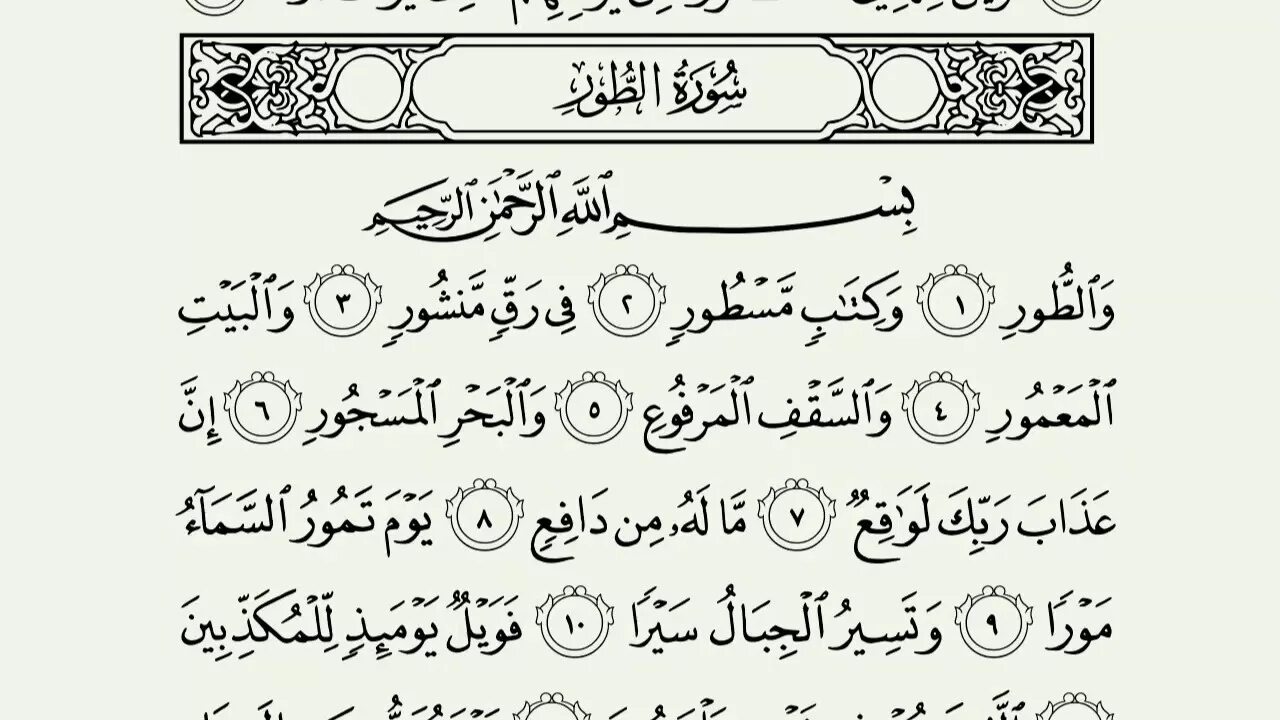 سُورَةُ الطُّورِ
بِسْمِ ٱللَّهِ ٱلرَّحْمَٰنِ ٱلرَّحِيمِ
وَٱلطُّورِ ١ وَكِتَٰبٍ مَّسْطُورٍ ٢ فِى رَقٍّ مَّنشُورٍ ٣ وَٱلْبَيْتِ
ٱلْمَعْمُورِ ٤ وَٱلسَّقْفِ ٱلْمَرْفُوعِ ٥ وَٱلْبَحْرِ ٱلْمَسْجُورِ ٦ إِنَّ
عَذَابَ رَبِّكَ لَوَٰقِعٌ ٧ مَّا لَهُۥ مِن دَافِعٍ ٨ يَوْمَ تَمُورُ ٱلسَّمَآءُ
مَوْرًا ٩ وَتَسِيرُ ٱلْجِبَالُ سَيْرًا ١٠ فَوَيْلٌ يَوْمَئِذٍ لِّلْمُكَذِّبِينَ